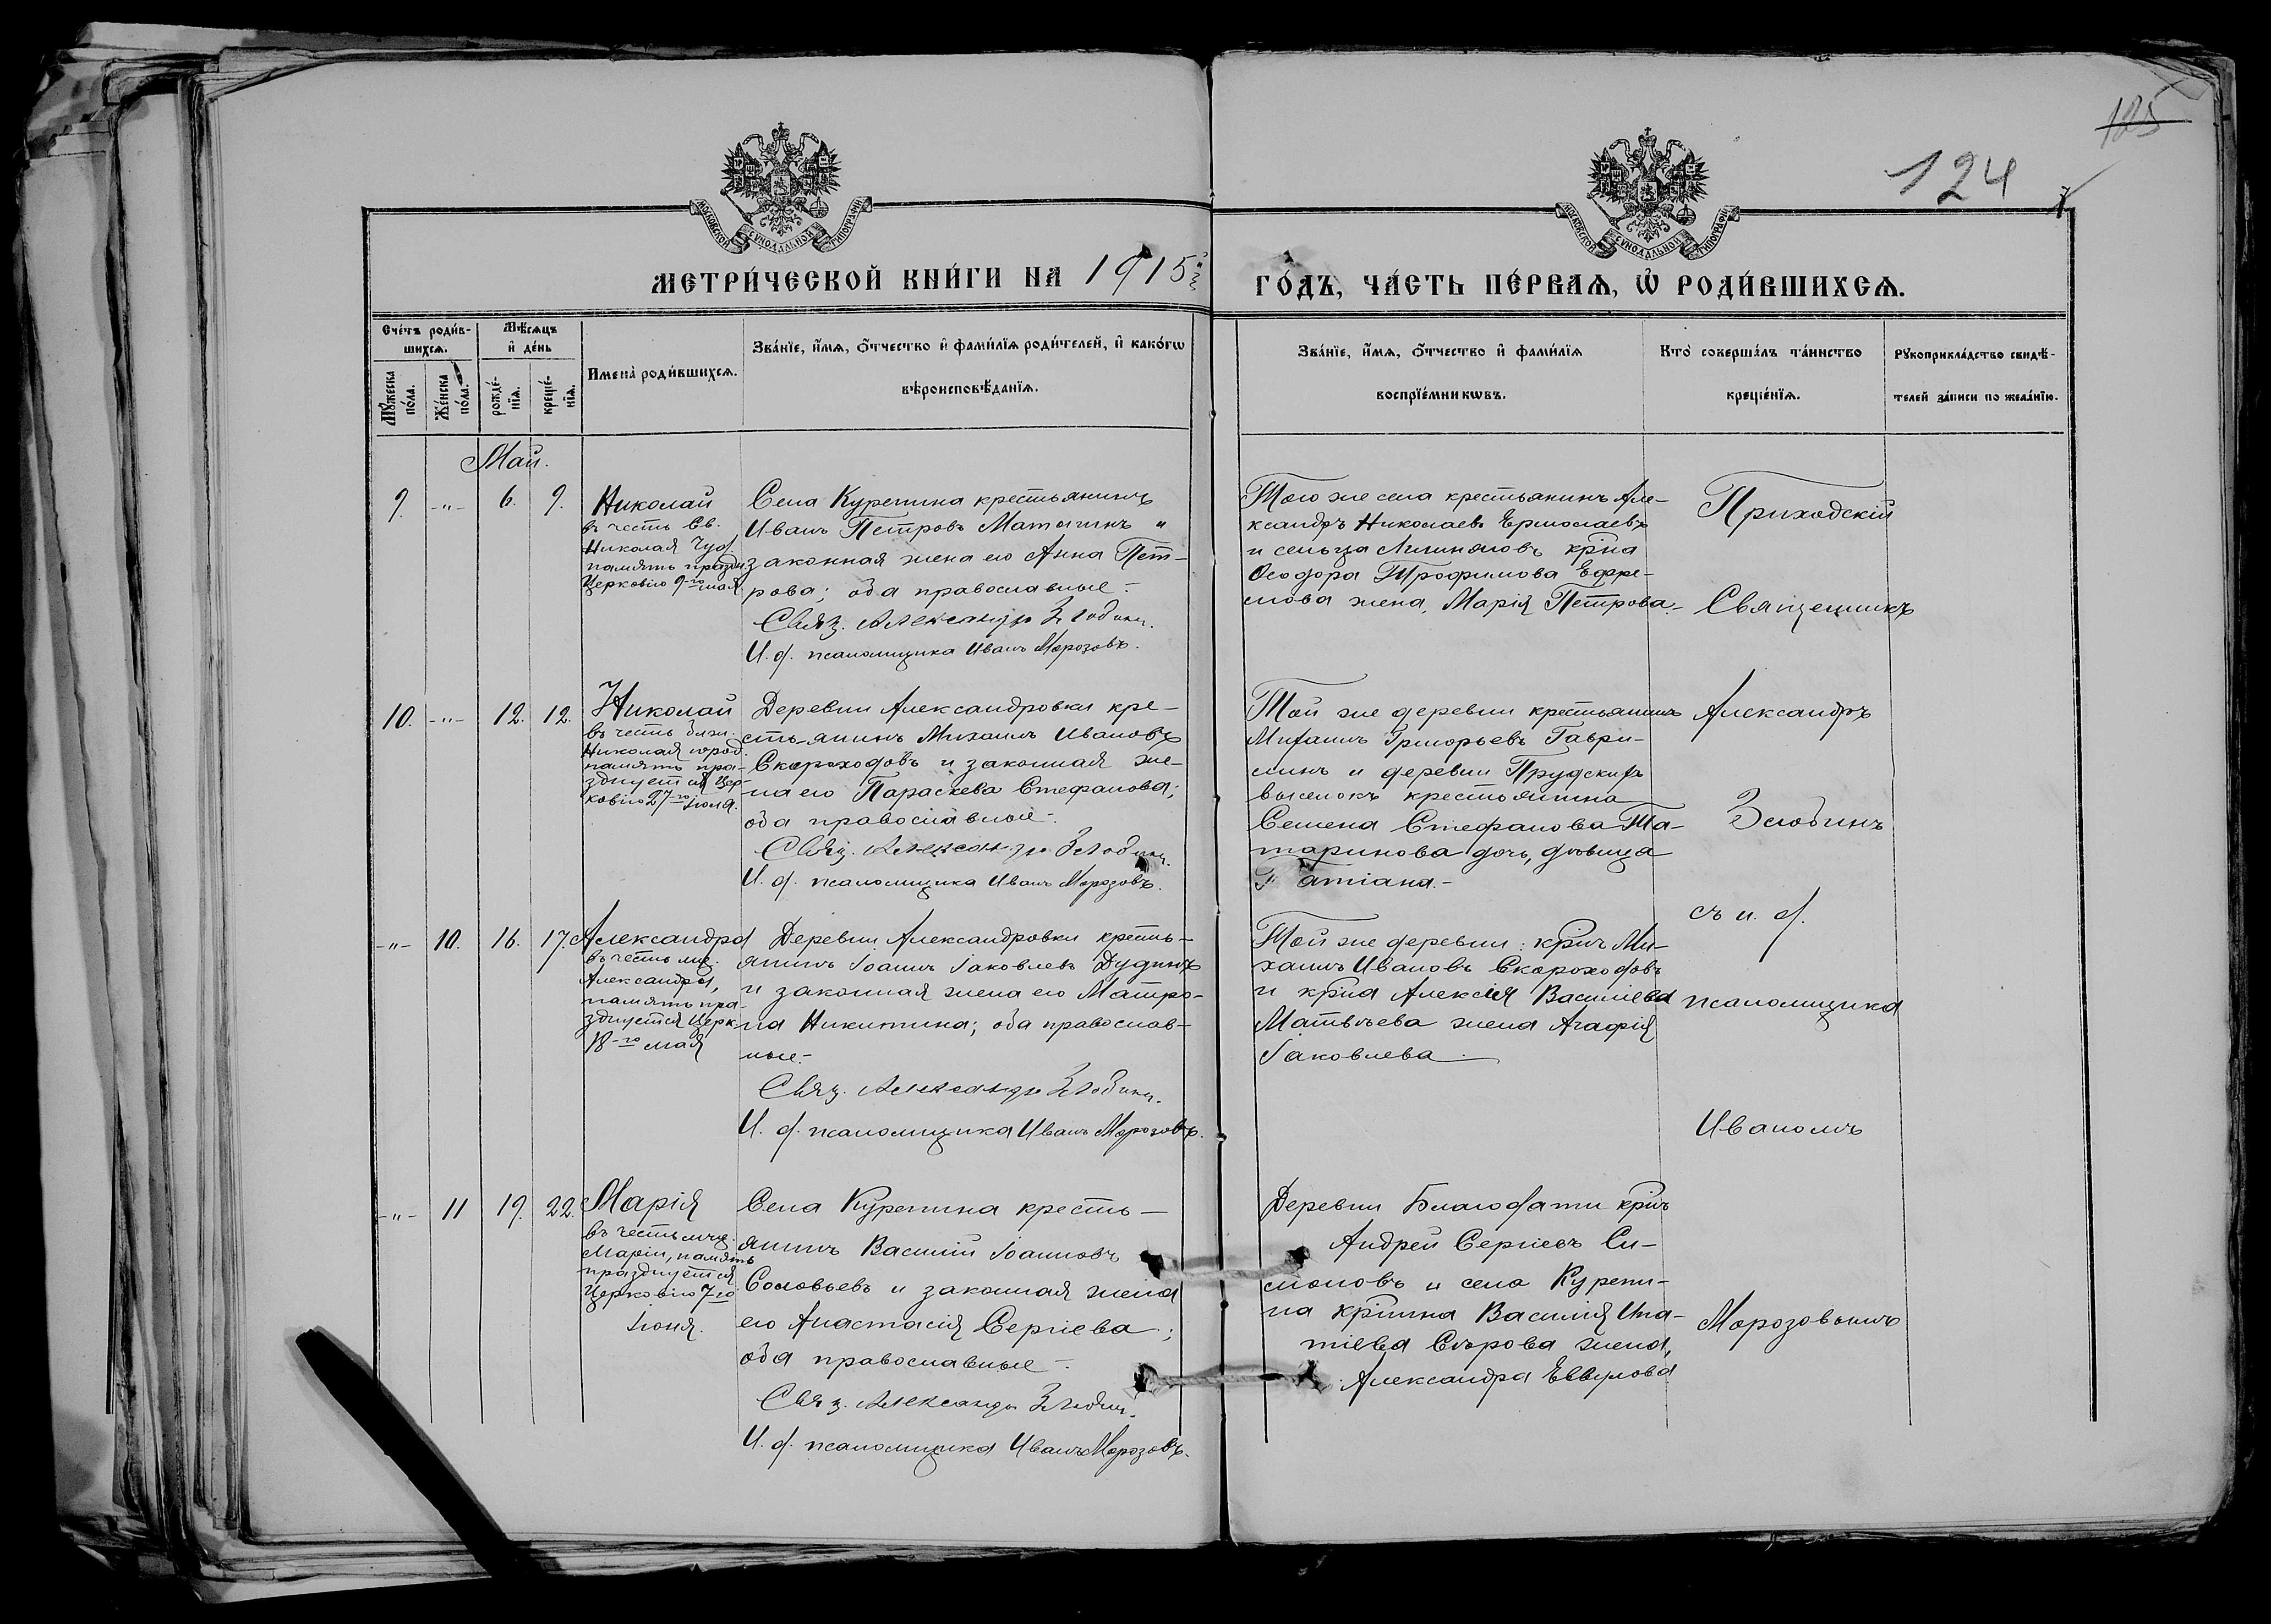 185
124
МОСКОВСКОЙ СѴНОДАЛЬНОЙ ТИПОГРАФІИ
МОСКОВСКОЙ СѴНОДАЛЬНОЙ ТИПОГРАФІИ
МЕТРИ́ЧЕСКОЙ КНИ́ГИ НА 1915й
ГО́ДЪ, ЧА́СТЬ ПЕ́РВАѦ, Ѡ҆ РОДИ́ВШИХСѦ.
Сче́тъ роди́в-
шихсѧ.
Мѹ́жеска по́ла.
Же́нска по́ла.
Мѣ́сѧцъ
и҆ де́нь
рожде́-нїѧ.
креще́-нїѧ.
Имена̀ роди́вшихсѧ.
Зва́нїе, и҆́мѧ, ѻ҆́тчество и҆ фами́лїѧ роди́телей, и҆ како́гѡ
вѣроисповѣ́данїѧ.
Зва́нїе, и҆́мѧ, ѻ҆́тчество и҆ фами́лїѧ
воспрїе́мникѡвъ.
Кто̀ соверша́лъ та́инство
креще́нїѧ.
Рꙋкоприкла́дство свидѣ́-
телей за́писи по жела́нїю.
Май.
9. -"- 6. 9.
Николай
въ честь Св.
Николая Чуд.
память праздн.
Церковію 9-го мая.
Села Курепина крестьянинъ
Иванъ Петровъ Матюгинъ и
законная жена его Анна Пет-
рова; оба православные.-
Свящ. Александръ Злобинъ.
И. д. псаломщика Иванъ Морозовъ.
Того же села крестьянинъ Але-
ксандръ Николаевъ Ермолаевъ
и сельца кр҃на
Ѳеодора Трофимова Ефре-
мова жена, Марія Петрова.-
Приходскій
Священникъ
10. -"- 12. 12.
Николай
въ честь блаж.
Николая
память пра-
зднуется Цер-
ковію 27-го Іюля.
Деревни Александровки кре-
стьянинъ Михаилъ Ивановъ
Скороходовъ и законная же-
на его Параскева Стефанова;
оба православные.-
Свящ. Александръ Злобинъ.
И. д. псаломщика Иванъ Морозовъ.
Той же деревни крестьянинъ
Михаилъ Григорьевъ Гаври-
линъ и деревни Прудскихъ
выселокъ крестьянина
Семена Стефанова Та-
таринова дочь, дѣвица
Татіана.-
Александръ
Злобинъ
съ и. д.
-"- 10. 16. 17.
Александра
въ честь мц.
Александры,
память пра-
зднуется Церк.
18-го мая
Деревни Александровки кресть-
янинъ Іоаннъ Іаковлевъ Дудинъ
и законная жена его Матро-
на Никитина; оба православ-
ные.-
Свящ. Александръ Злобинъ.
И. д. псаломщика Иванъ Морозовъ.
Той же деревни: кр҃нъ Ми-
хаилъ Ивановъ Скороходовъ
и кр҃на Алексія Василіева
Матвѣева жена Агафія
Іаковлева.
псаломщика
Иваномъ
-"- 11 19. 22.
Марія
въ честь мчц.
Маріи, память
празднуется
Церковію 7-го
Іюня.
Села Курепина кресть-
янинъ Василій Іоанновъ
Соловьевъ и законная жена
его Анастасія Сергіева;
оба православные.-
Свящ. Александръ Злобинъ.
И. д. псаломщика Иванъ Морозовъ.
Деревни Благодати кр҃нъ
Андрей Сергіевъ Си-
моновъ и села Курепи-
на кр҃нина Василія Ипа-
тіева Сѣрова жена,
Александра Еввулова
Морозовымъ